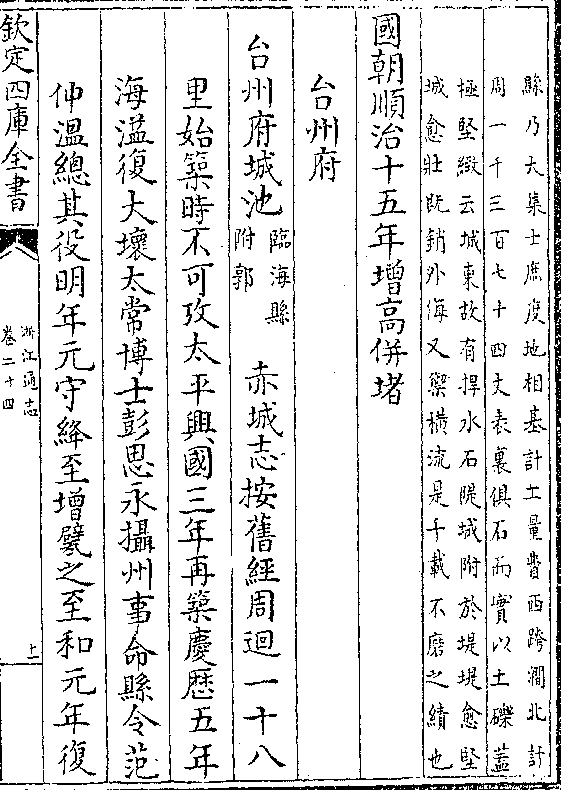 縣乃大集士庶度地相基計工量費西跨澗北計
周一千三百七十四丈表裏俱石而實以土礫蓋
極堅緻云城東故有捍水石隄城附於堤堤愈堅
城愈壯既銷外侮又禦橫流是千載不磨之績也
國朝順治十五年增高併堵
台州府
台州府城池
臨海縣
附郭
赤城志按舊經周迴一十八
里始築時不可攷太平興國三年再築慶歷五年
海溢復大壞太常博士彭思永攝州事命縣令范
仲溫總其役明年元守絳至增甓之至和元年復
欽定四庫全書
浙江通志
卷二十四
十一